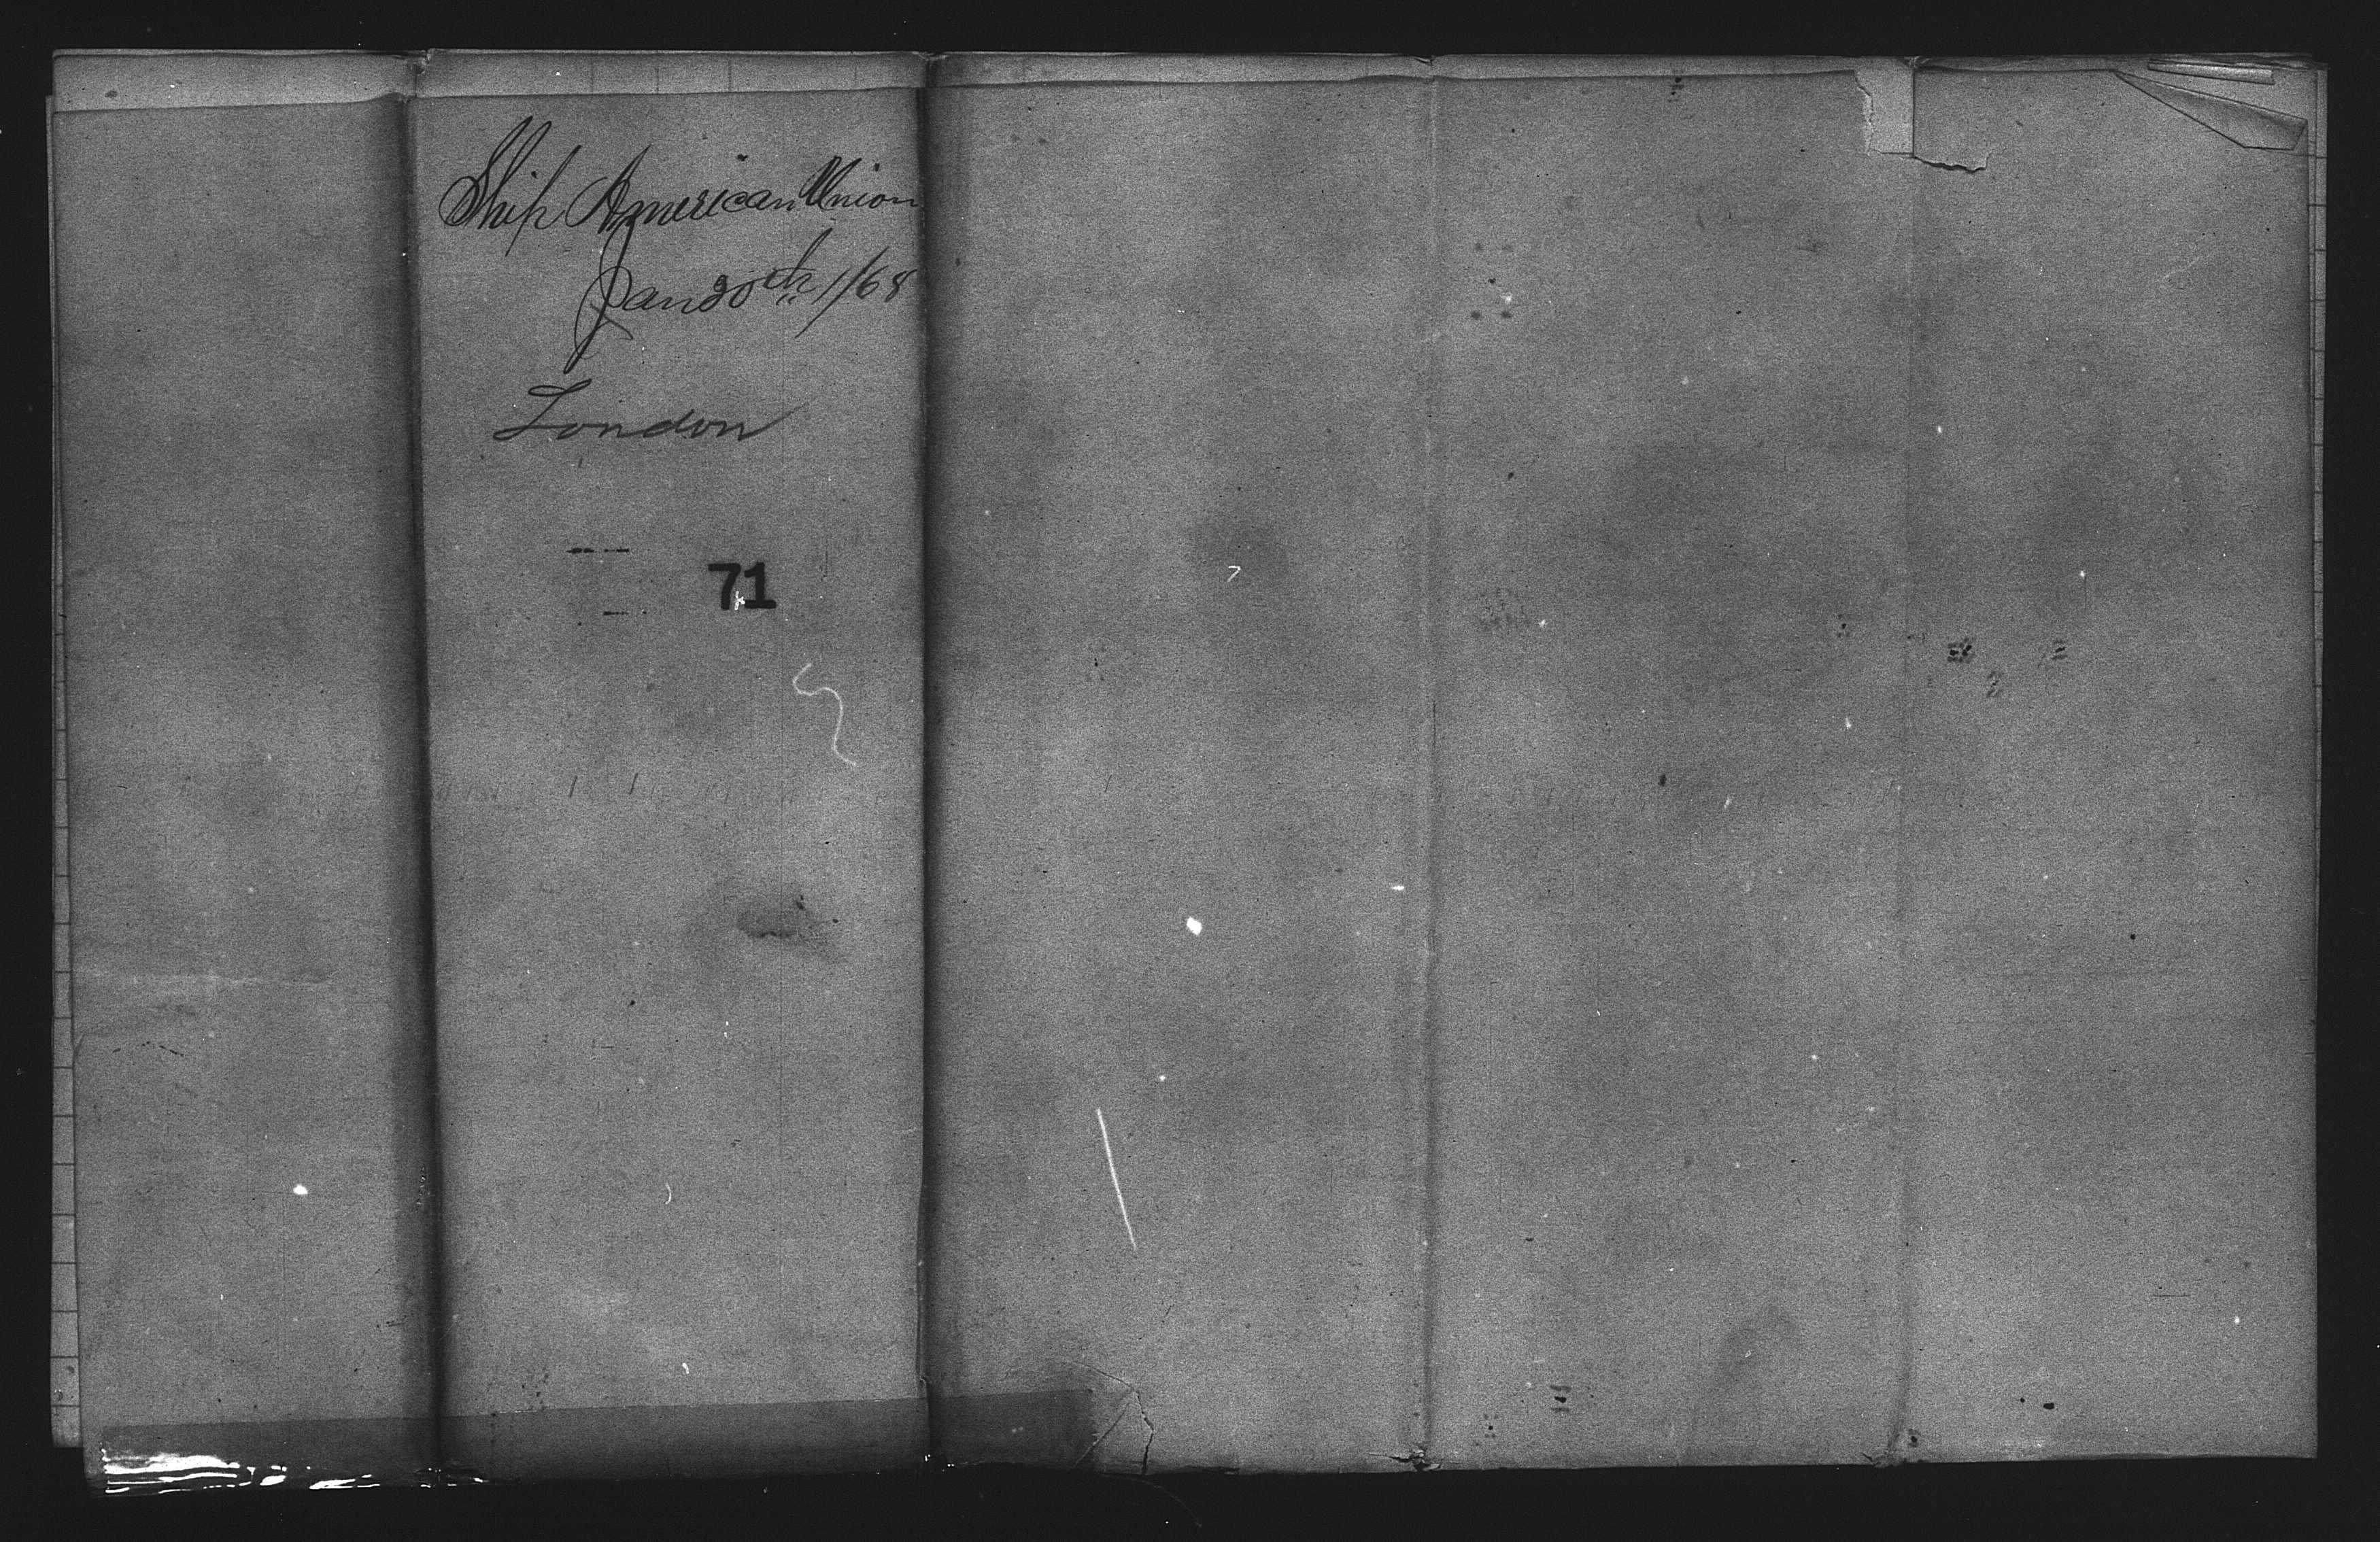 Ship American Union
Jan 30th 1/68
London
71